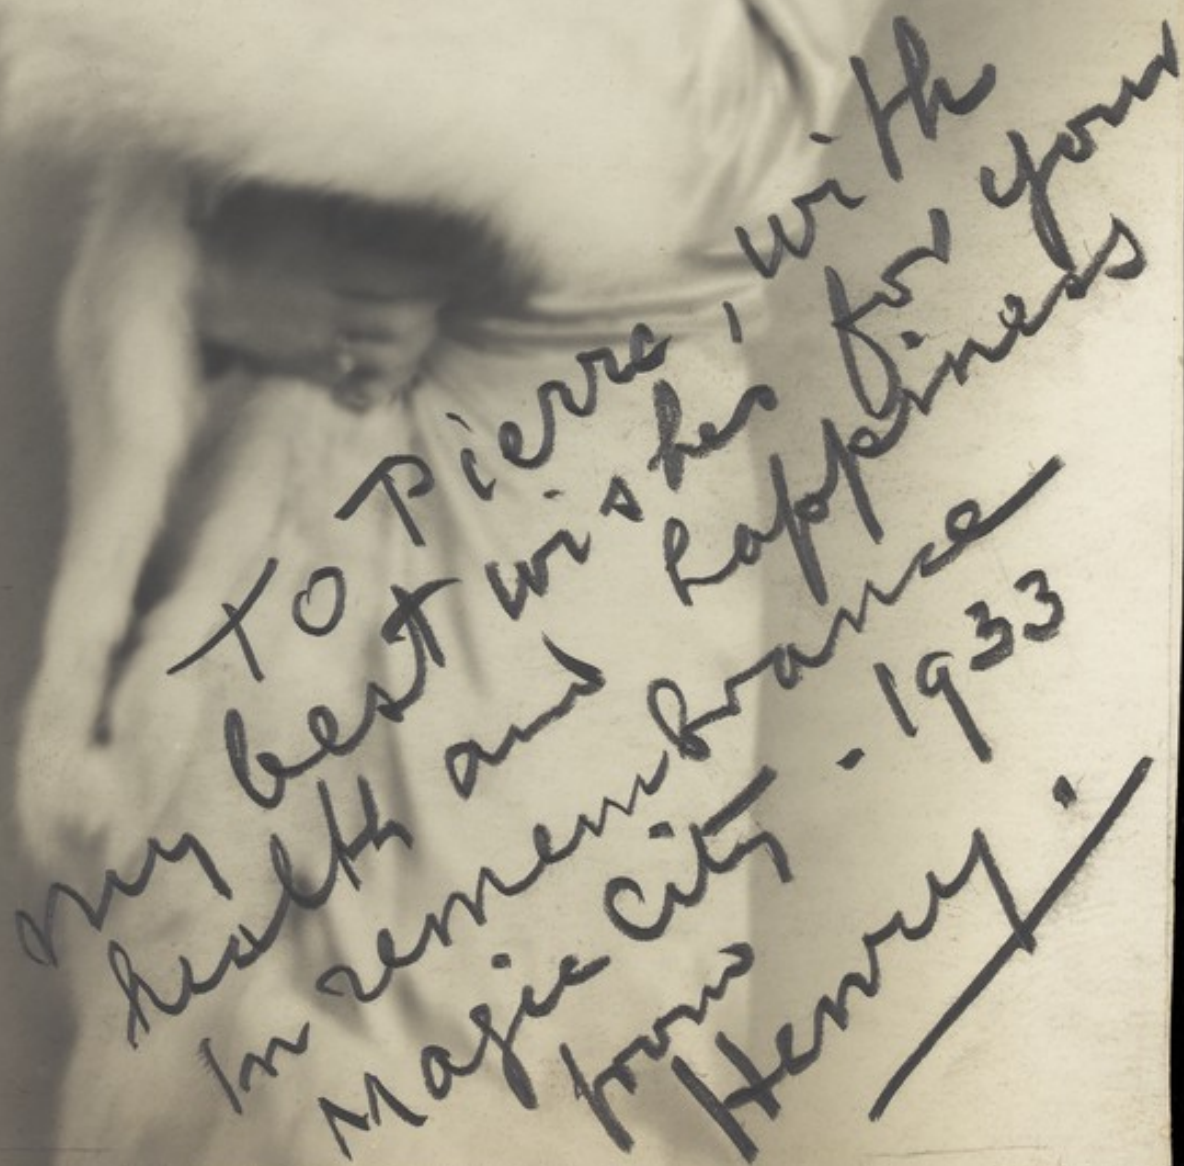 To Pierre, with
my best wishes for your
health and happiness
In remembrance
Magic City - 1933
from
Henry.